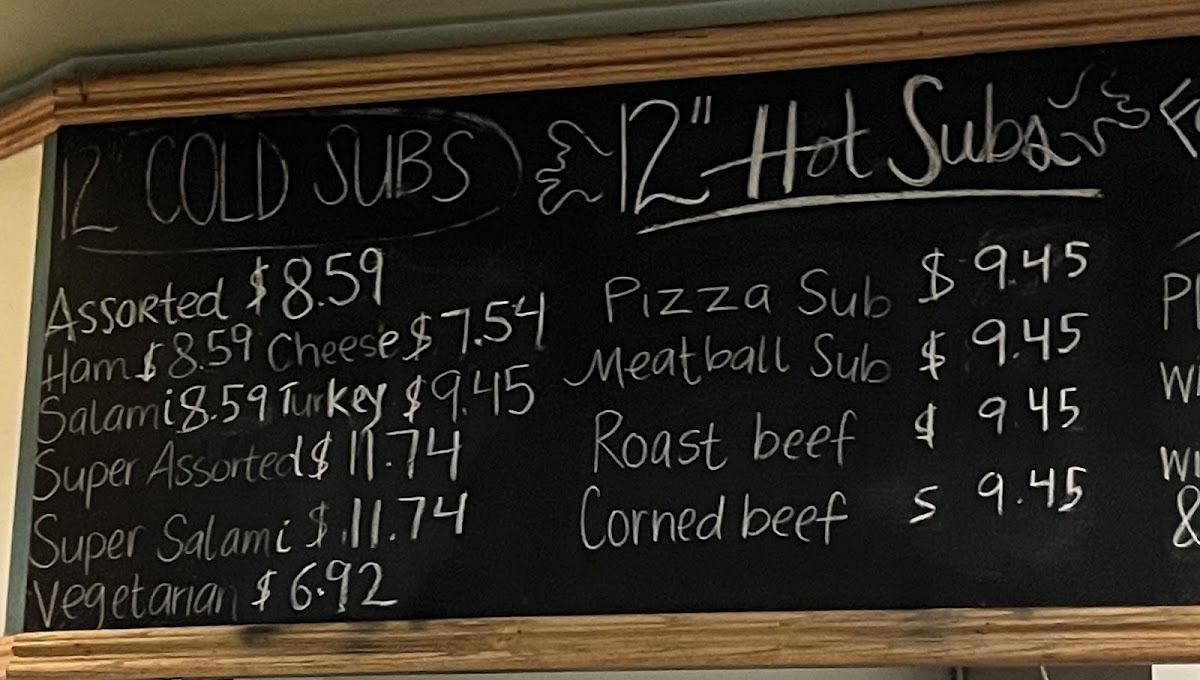 12" COLD SUBS
Assorted $8.59
Ham $8.59 Cheese $7.54
Salami 8.59 Turkey $9.45
Super Assorted $11.74
Super Salami $.11.74
Vegetarian $6.92
12" Hot Subs
Pizza Sub $9.45
Meatball Sub $9.45
Roast beef $ 9.45
Corned beef $ 9.45
&